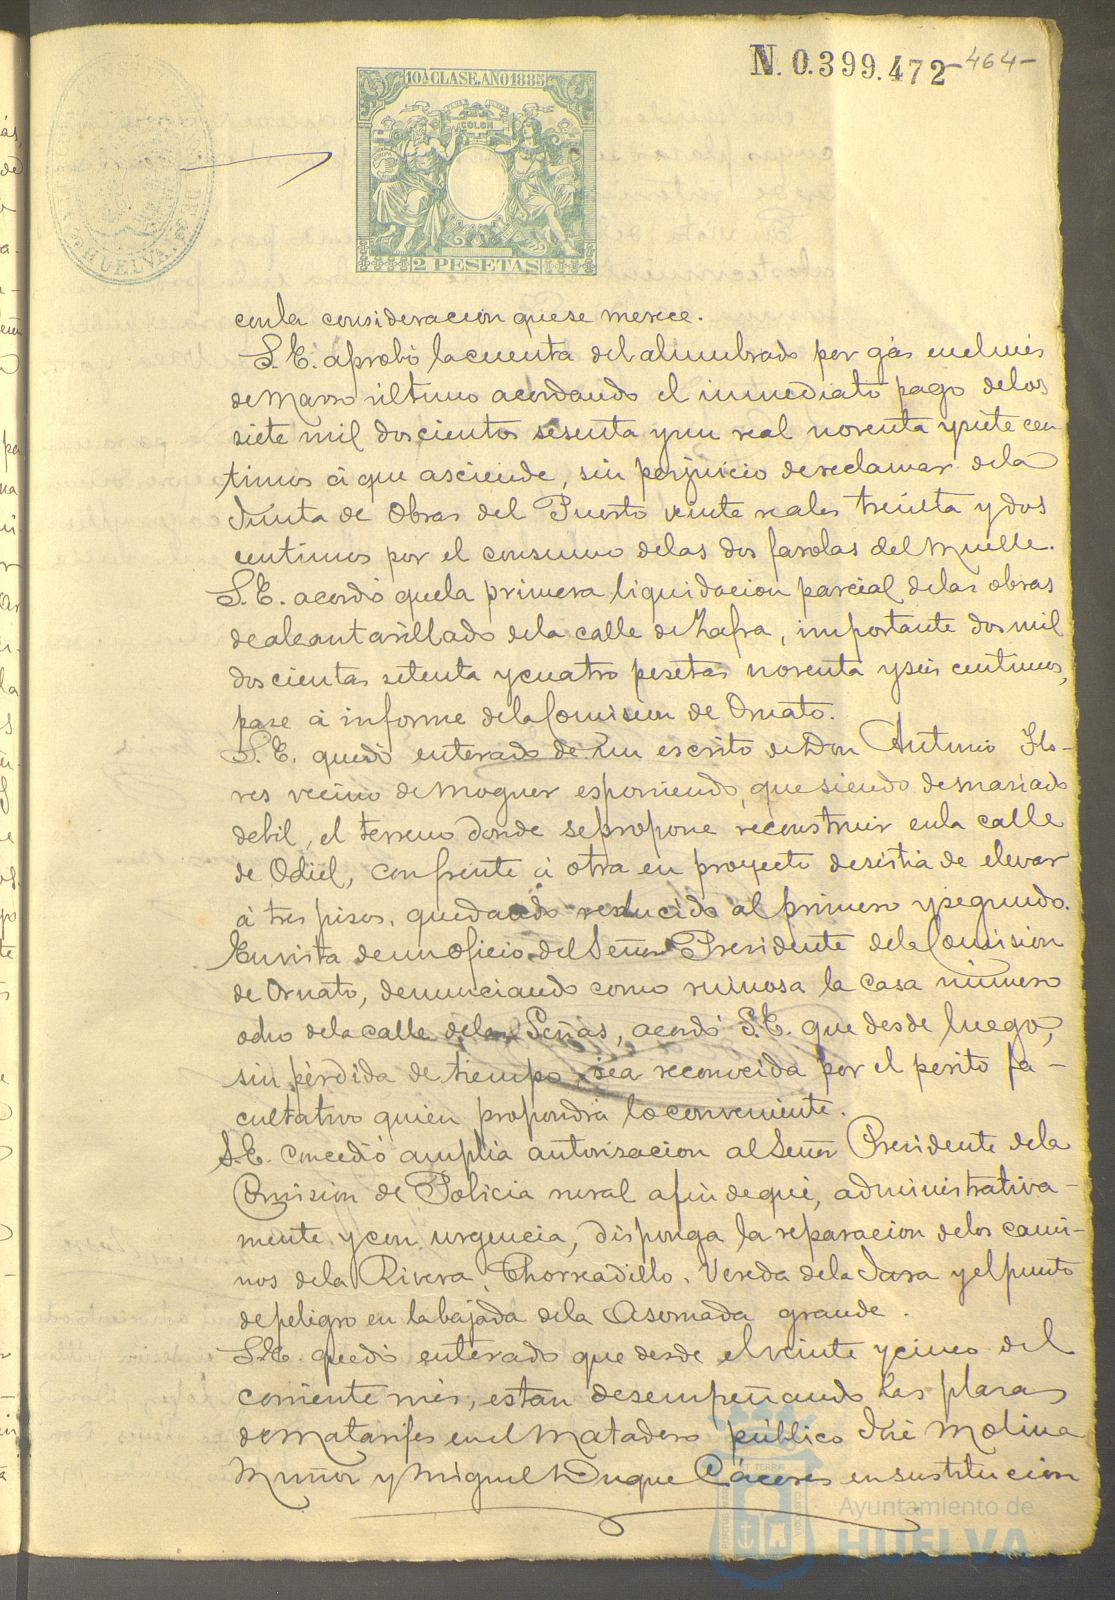 N. 0.399.472 -464-
10ª CLASE. AÑO 1885
COLON
2 PESETAS
HUELVA
con la consideracion que se merece.
S. E. aprobó la cuenta del alumbrado por gas en el mes
de Marzo último acordando el inmediato pago de los
siete mil doscientos sesenta y un real noventa y siete cen
timos á que asciende, sin perjuicio de reclamar de la
Junta de Obras del Puerto veinte reales treinta y dos
centimos por el consumo de las dos farolas del Muelle.
S. E. acordó que la primera liquidacion parcial de las obras
de alcantarillado de la calle de Zafra, importante dos mil
doscientas setenta y cuatro pesetas noventa y seis centimos,
pase á informe de la Comision de Ornato.
S. E. quedó enterado de un escrito de Don Antonio Flo-
res vecino de Moguer esponiendo, que siendo demasiado
debil, el terreno donde se propone reconstruir en la calle
de Odiel, con frente á otra en proyecto desistia de elevar
á tres pisos, quedando reducido al primero y segundo.
En vista de un oficio del Señor Presidente de la Comision
de Ornato, denunciando como ruinosa la casa número
ocho de la calle de las Peñas, acordó S. E. que desde luego,
sin pérdida de tiempo, sea reconocida por el perito fa-
cultativo quien propondrá lo conveniente.
S. E. concedió amplia autorizacion al Señor Presidente de la
Comision de Policia rural a fin de que, administrativa-
mente y con urgencia, disponga la reparacion de los cami-
nos de la Rivera, Chorreadillo, Vereda de la Jara y el punto
de peligro en la bajada de la Asomada grande.
S. E. quedó enterado que desde el veinte y cinco del
corriente mes, estan desempeñando las plazas
de Matarifes en el Matadero público José Molina
Muñoz y Miguel Duque Cáceres en sustitucion
Ayuntamiento de
HUELVA